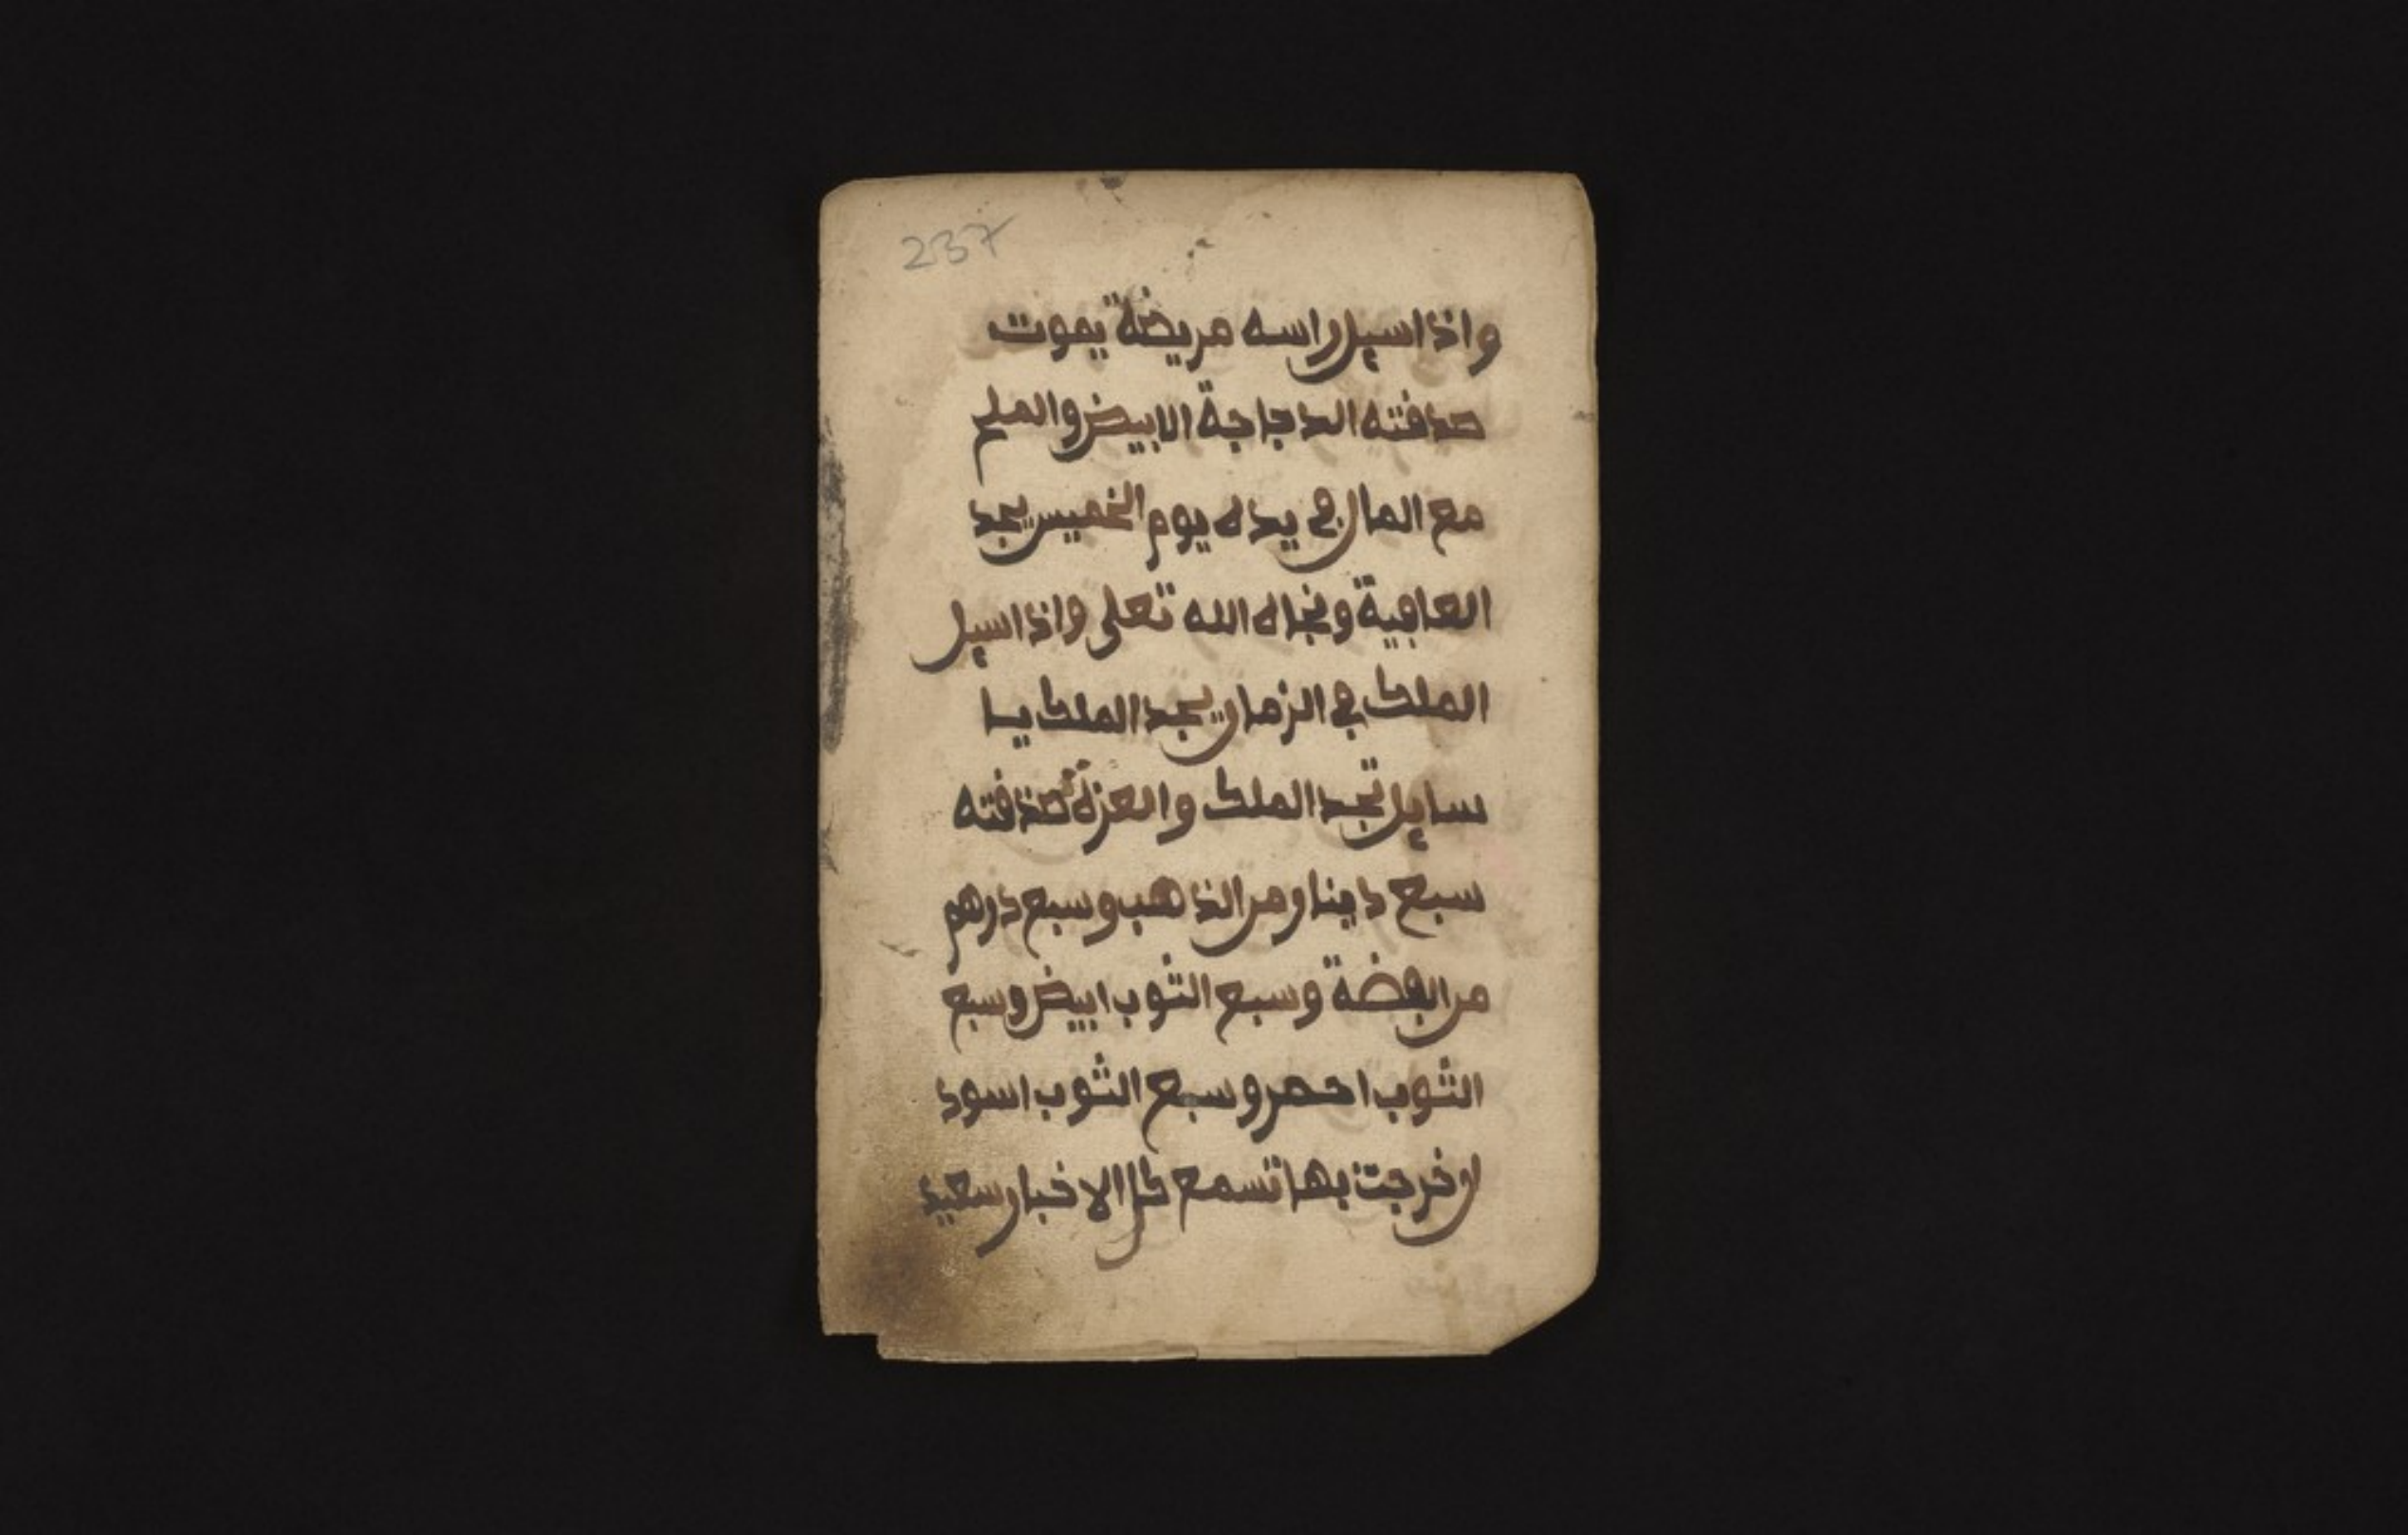 237
واذا سيل راسه مريضة يموت
صدقته الدجاجة الابيض والملح
مع المال في يده يوم الخميس يجد
العافية ونجاه الله تعلى واذا سيل
الملك في الزمان يجد الملك يا
سايل تجد الملك والعزة صدقته
سبع دينار من الذهب وسبع درهم
من الفضة وسبع الثوب ابيض وسبع
الثوب احمر وسبع الثوب اسود
ان خرجت بها تسمع كل الاخبار سعيد